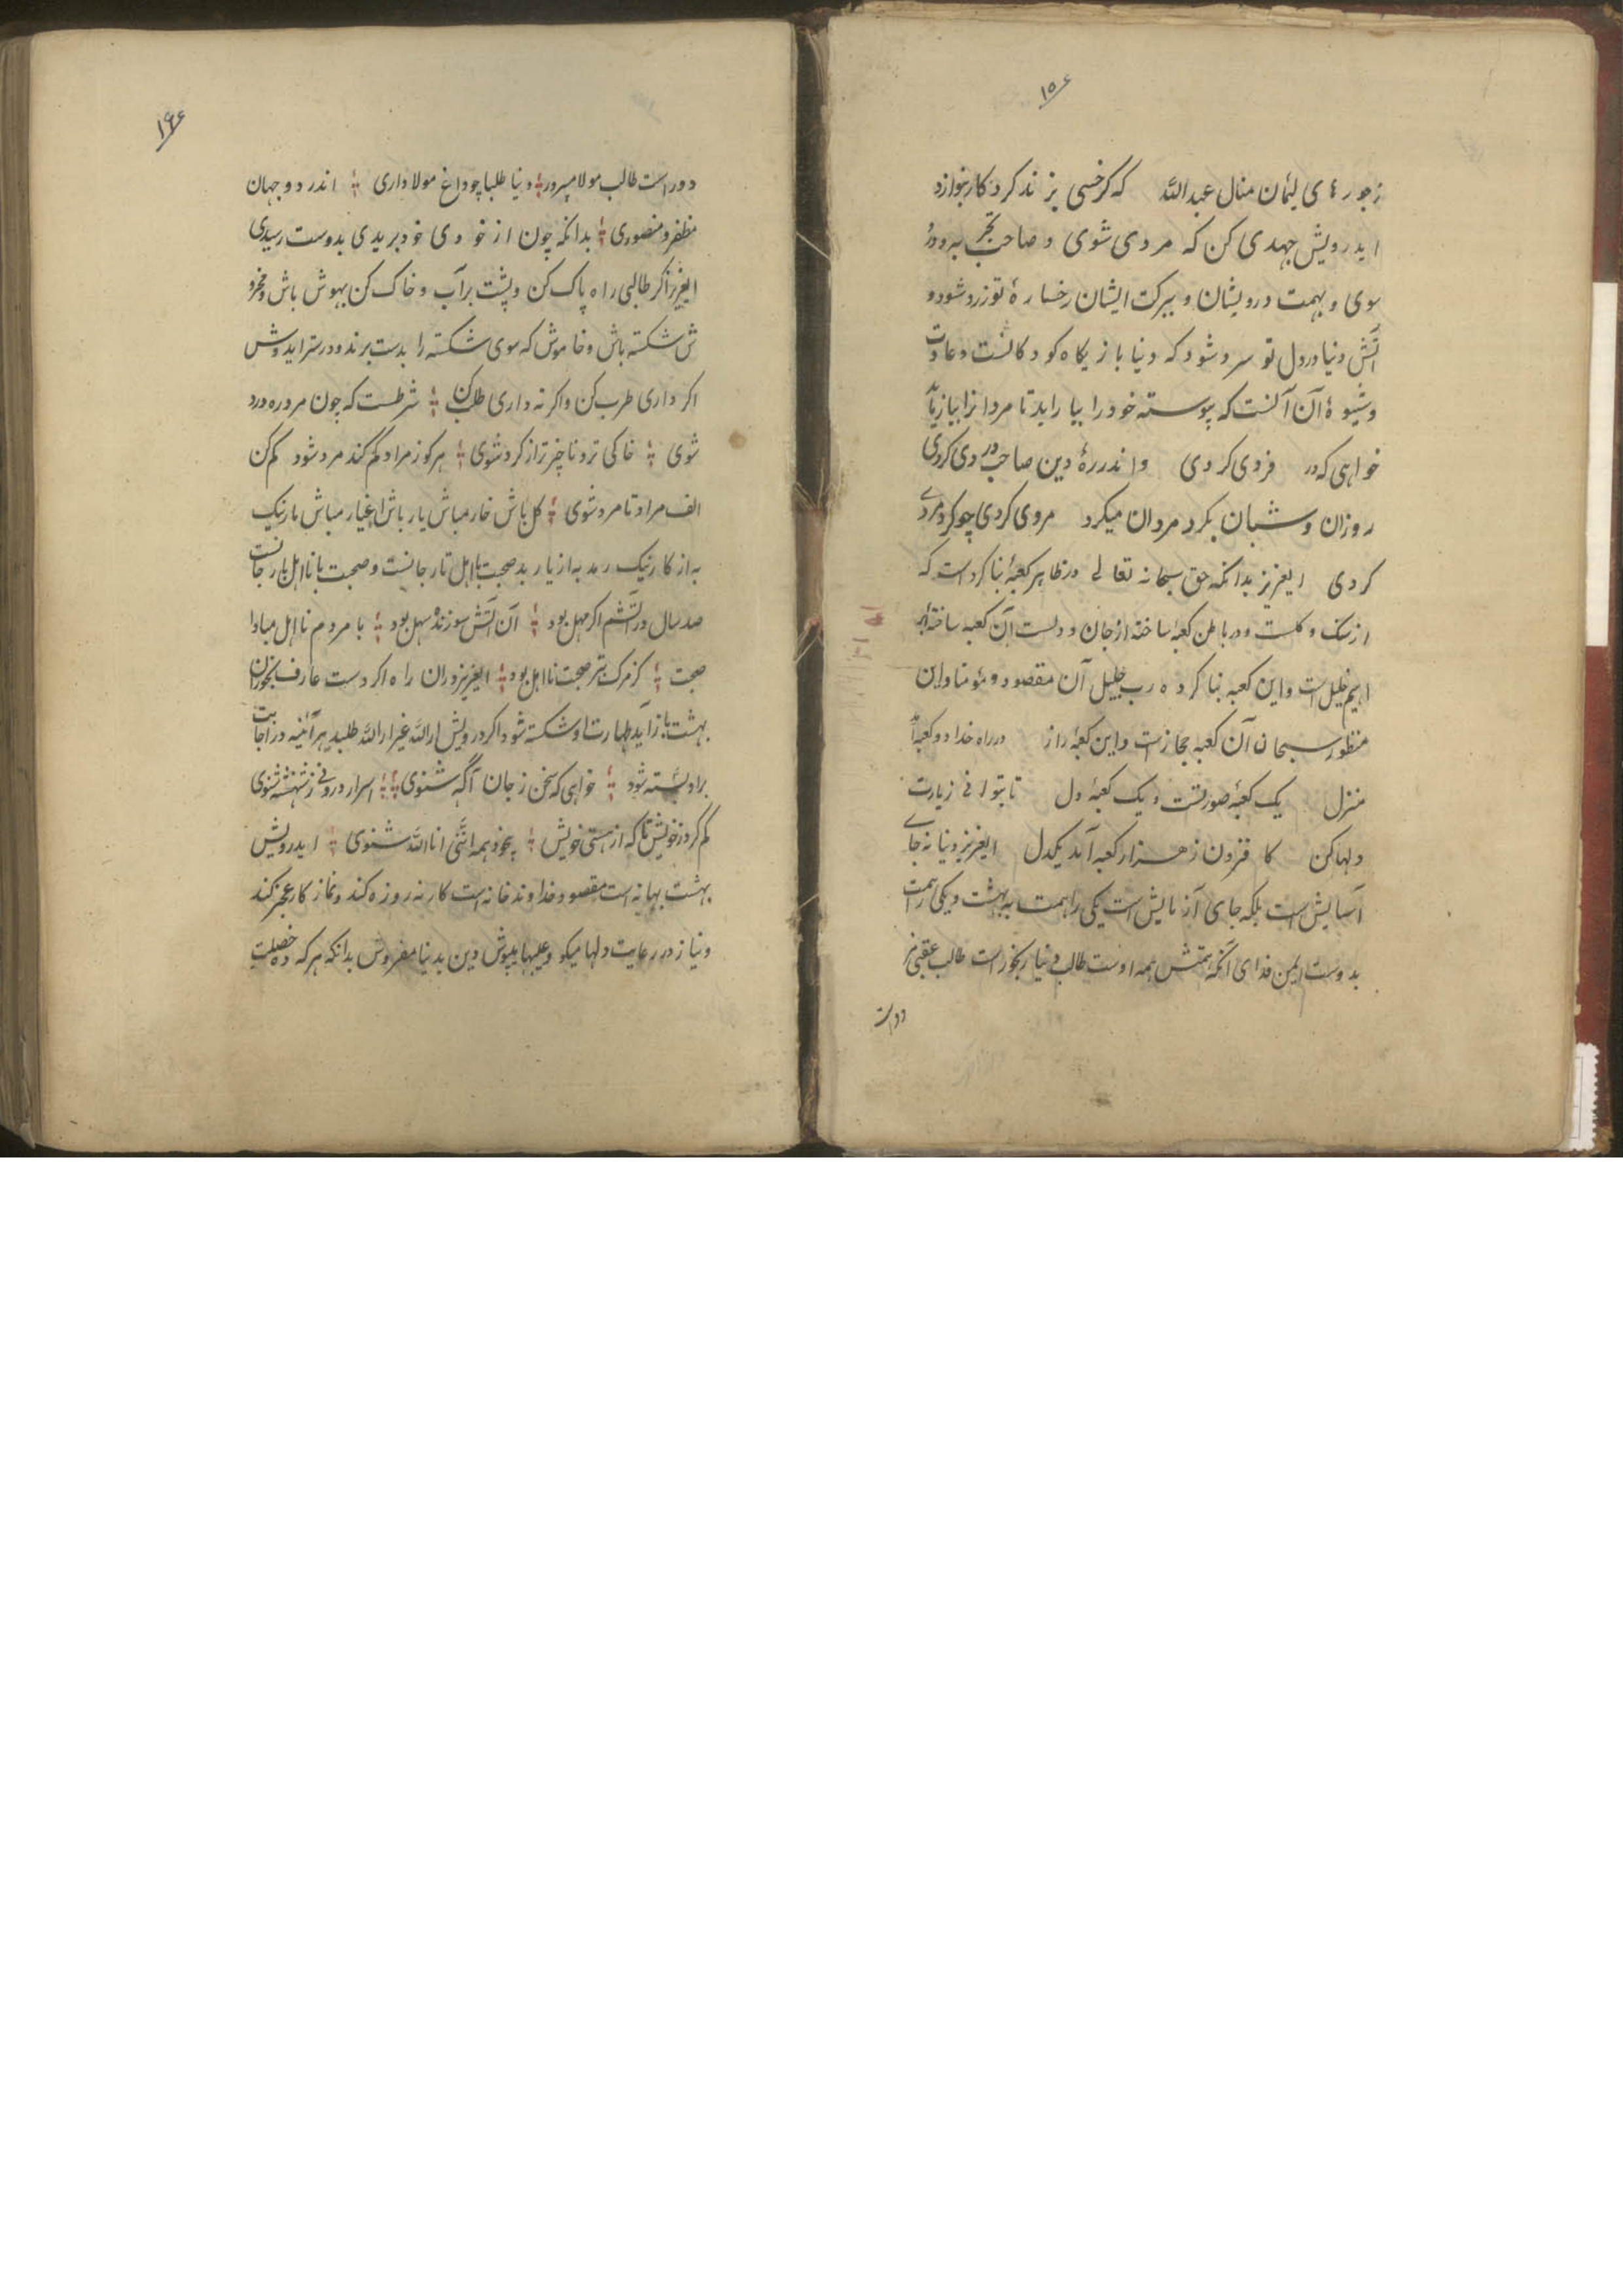 ۱۵۶
زجورهای لئیمان منال عبدالله که کر خسی بزند کردکار بنوازد
ایدرویش جهدی کن که مردی شوی و صاحب تجربه و درد
سوی و بهمت درویشان و ببرکت ایشان رخسارهٔ تو زرد شود و
آتش دنیا در دل تو سرد شود که دنیا بازیکاه کودکانست و عادت
و شیوهٔ آن آنست که پیوسته خود را بیاراید تا مردانرا بیازماید
خواهی که در فردی کردی واندر رهٔ دین صاحب دردی کردی
روزان و شبان بکرد مردان میکرد مردی کردی چو کرد مردے
کردی ایعزیز بدانکه حق سبحانه تعالے در ظاهر کعبهٔ بنا کرد است که
از سنک و کلست و در باطن کعبهٔ ساخته از جان و دلست آن کعبه ساختهٔ ابر
اهیم خلیل است و این کعبه بنا کرده رب جلیل آن مقصود و مؤمنا و این
منظور سبحان آن کعبه مجازست و این کعبهٔ راز در راه خدا دو کعبه آمد
منزل یک کعبهٔ صورتست و یک کعبهٔ دل تا بتوانی زیارت
دلها کن کافزون ز هزار کعبه آمد یکدل ایعزیز دنیا نه جاے
آسایش است بلکه جای آزمایش است یکی را همت به بهشت و یکی را همت
بدوست ایمن فدای آنکه همتش همه اوست طالب دنیا رنجور است طالب عقبی مز
دور است
۱۶۶
دور است طالب مولا مسرور دنیا طلبا چو داغ مولا داری اندر دو جهان
مظفر و منصوری بدانکه چون از خودی خود بریدی بدوست رسیدی
ایعزیز اکر طالبی راه پاک کن و پشت بر آب و خاک کن بیهوش باش و مخرو
ش شکسته باش و خاموش که سوی شکسته را بدست برند و درستر ابدوش
اکر داری طرب کن و اکر نه داری طلب کن شرطست که چون مرد ره درد
شوی خاکی تر و ناچیز تر از کرد شوی هر کو ز مراد کم کند مرد شود کم کن
الف مراد تا مرد شوی کل باش خار مباش یار باش اغیار مباش مار نیک
به از کار نیک بد به از یار بد صحبت با اهل تار جانست و صحبت با نااهل بار جانست
صد سال در آتشم اکر مهل بود آن آتش سوزنده سهل بود با مردم نااهل مبادا
صحبت کز مرک بتر صحبت نااهل بود ایعزیز در ان راه اکر دست عارف بحوران
بهشت باز آید طهارت او شکسته شود اکر درویش از الله غیر از الله طلبد هر آئینه در اجابت
بر او بسته شود خواهی که سخن ز جان آکه شنوی اسرار درونی ز شهنشه شنوی
کم کرد ز خویش تا که از هستی خویش بیخود همه انّنی انا الله شنوی ایدرویش
بهشت بهانه است مقصود خداوند خانه است کار نه روزه کند و نماز کار عجز کند
و نیاز در رعایت دلها میکو و عیبها بپوش دین بدنیا مفروش بدانکه هر که ده خصلت